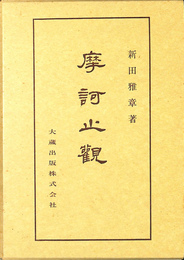 新田雅章著
摩訶止観
大蔵出版株式会社